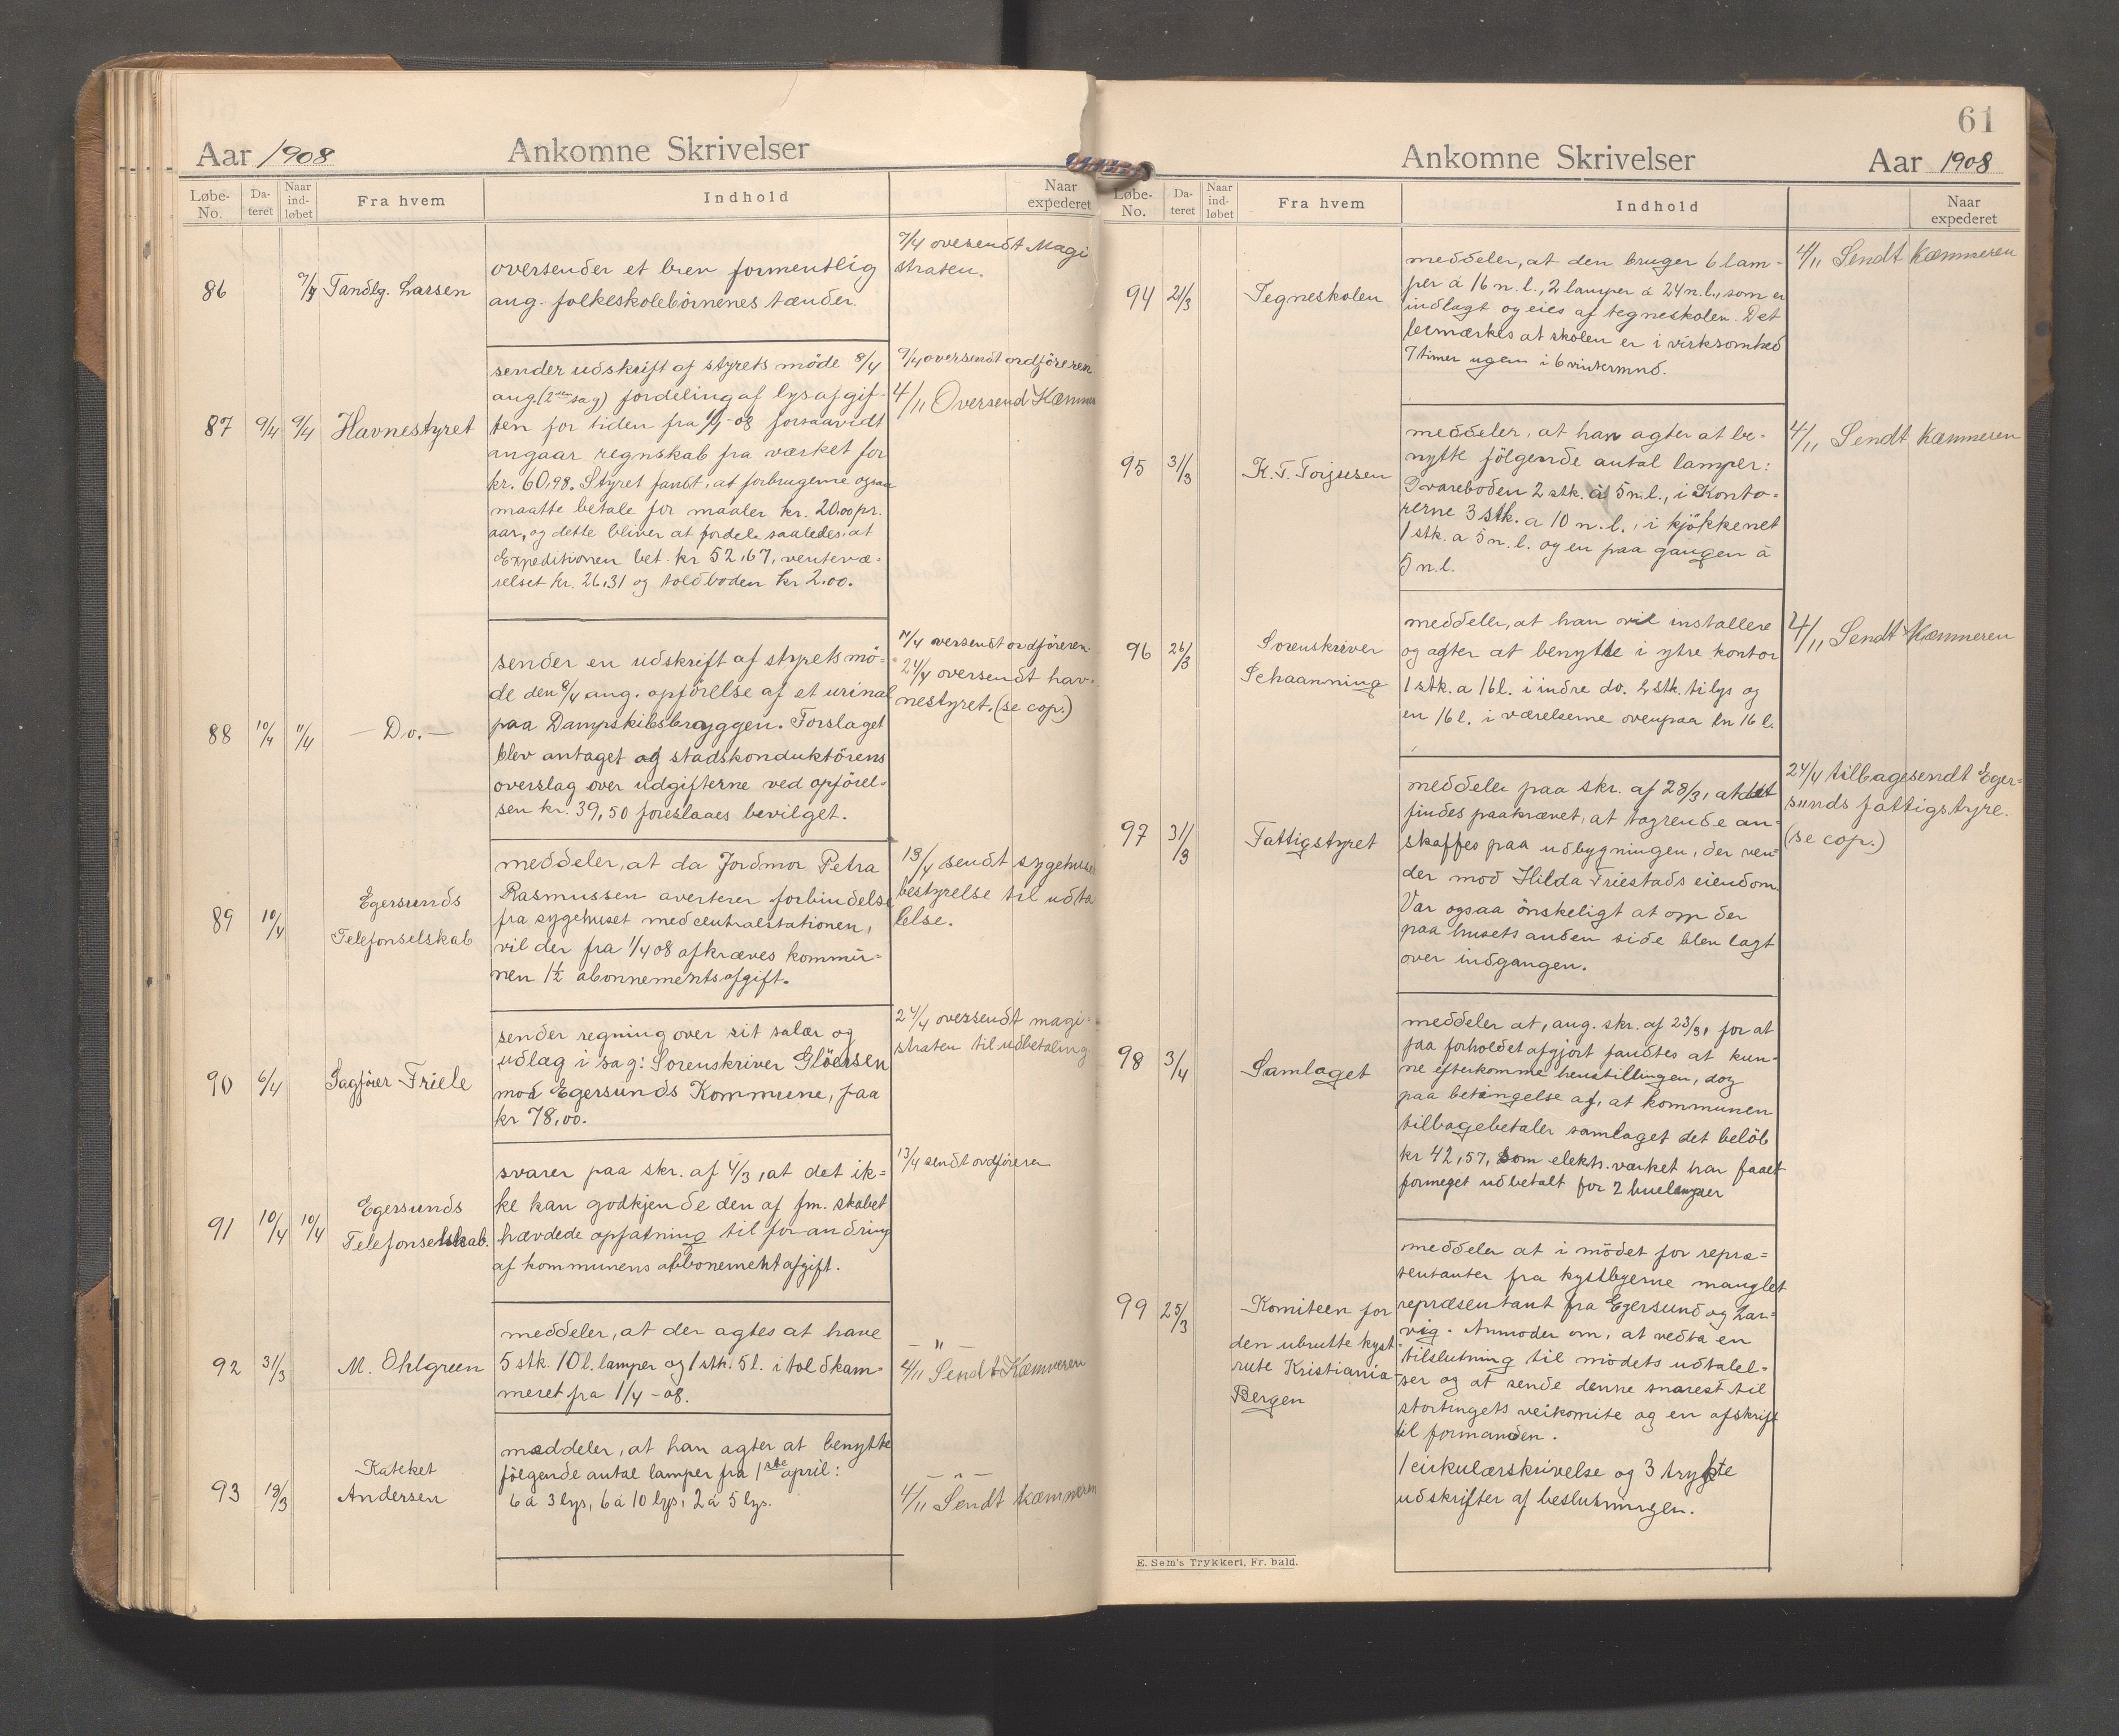 Aar 1908 Ankomne Skrivelser
Løbe-No. Da-teret Naar ind-løbet Fra hvem Indhold Naar expederet
86 7/4 Tandlg. Larsen
oversender et brev formentlig
ang. folkeskolebörnenes tænder.
7/4 oversendt Magi
straten.
87 9/4 9/4 Havnestyret
sender udskrift af styrets möde 8/4
ang. (2den sag) fordeling af lysafgif-
ten for tiden fra 1/1-08 forsaavidt
angaar regnskab fra værket for
kr. 60,98. Styret fandt, at forbrugerne ogsaa
maatte betale for maaler kr. 20.00 pr.
aar, og dette bliver at fordele saaledes, at
Expeditionen bet. kr 52,67, ventevæ-
relset kr. 26,31 og toldboden kr 2.00.
9/4 oversendt ordföreren
4/11 Oversend Kæmner
88 10/4 11/4 — Do. —
sender en udskrift af styrets mö-
de den 8/4 ang. opförelse af et urinal
paa Dampskibsbryggen. Forslaget
blev antaget og stadskonduktörens
overslag over udgifterne ved opförel-
sen kr. 39,50 foreslaaes bevilget.
11/4 oversendt ordföreren.
24/4 oversendt hav-
nestyret. (se cop.)
89 10/4 Egersunds
Telefonselskab
meddeler, at da Jordmor Petra
Rasmussen averterer forbindelse
fra sygehuset med centralstationen,
vil der fra 1/4 08 afkræves kommu-
nen 1½ abonnementsafgift.
13/4 sendt sygehuse
bestyrelse til udta
lelse.
90 6/4 Sagförer Friele
sender regning over sit salær og
udlæg i sag: Sorenskriver Glöersen
mod Egersunds Kommune, paa
kr 78,00.
24/4 oversendt magi-
straten til udbetaling
91 10/4 10/4 Egersunds
Telefonselskab.
svarer paa skr. af 4/3, at det ik-
ke kan godkjende den af fm. skabet
hævdede opfatning til forandring
af kommunens abbonementafgift.
13/4 sendt ordföreren
92 31/3 M. Ohlgreen
meddeler, at der agtes at have
5 stk. 10 l. lamper og 1 stk. 5 l. i toldkam-
meret fra 1/4-08.
— " —
4/11 Sendt Kæmneren
93 19/3 Kateket
Andersen
meddeler, at han agter at benytte
fölgende antal lamper fra 1ste april:
6 á 3 lys, 6 á 10 lys, 2 á 5 lys.
— " —
4/11 Sendt kæmneren
61
Ankomne Skrivelser Aar 1908
Løbe-No. Da-teret Naar ind-løbet Fra hvem Indhold Naar expederet
94 21/3 Tegneskolen
meddeler, at den bruger 6 lam-
per á 16 n. l., 2 lamper á 24 n. l., som er
indlagt og eies af tegneskolen. Det
bemærkes at skolen er i virksomhed
7 timer ugen i 6 vintermnd.
4/11 Sendt kæmneren
95 31/3 K. T. Torjusen
meddeler, at han agter at be-
nytte fölgende antal lamper:
I vareboden 2 stk. á 5 n. l., i Konto-
rerne 3 stk. a 10 n. l., i kjökkenet
1 stk. a 5 n. l. og en paa gangen á
5 n. l.
4/11 Sendt kæmneren
96 26/3 Sorenskriver
Schaanning
meddeler, at han vil installere
og agter at benytte i ytre kontor
1 stk. a 16 l. i indre do. 2 stk. ti lys og
en 16 l. i værelserne ovenpaa en 16 l.
4/11 Sendt Kæmneren
97 31/3 Fattigstyret
meddeler paa skr. af 28/3, at det
findes paakrævet, at tagrende an-
skaffes paa udbygningen, der ven-
der mod Hilda Friestads eiendom.
Var ogsaa önskeligt at om der
paa husets anden side blev lagt
over indgangen.
24/4 tilbagesendt Eger-
sunds fattigstyre.
(se cop.)
98 3/4 Samlaget
meddeler at, ang. skr. af 23/3, for at
paa forholdet afgjort fandtes at kun-
ne efterkomme henstillingen, dog
paa betingelse af, at kommunen
tilbagebetaler samlaget det belöb
kr 42,57, som elektr. værket har faaet
formeget udbetalt for 2 buelamper
99 25/3 Komiteen for
den ubrutte kyst-
rute Kristiania-
Bergen
meddeler at i mödet for repræ-
sentanter fra kystbyerne manglet
repræsentant fra Egersund og Lar-
vig. Anmoder om, at vedta en
tilslutning til mödets udtalel-
ser og at sende denne snarest til
stortingets veikomite og en afskrift
til formanden.
1 cirkulærskrivelse og 3 trykte
udskrifter af beslutningen.
E. Sem's Trykkeri, Fr. hald.